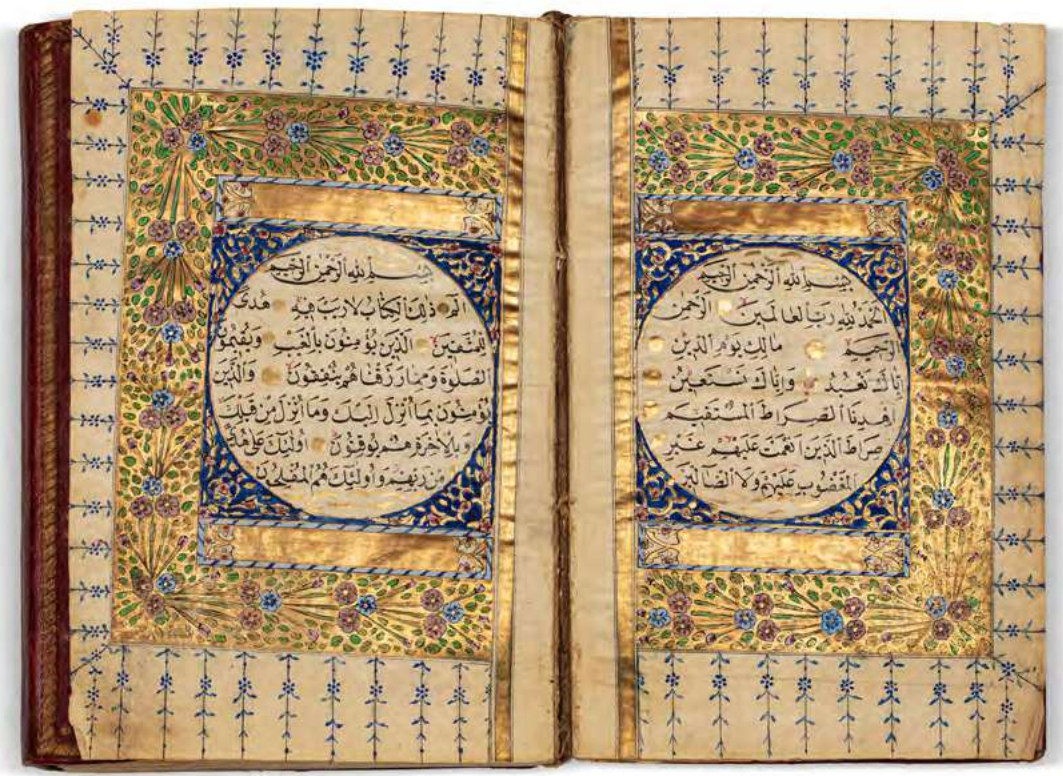 بِسْمِ اللهِ الرَّحْمٰنِ الرَّحِيمِ
اَلْحَمْدُ لِلهِ رَبِّ الْعَالَمِينَ الرَّحْمٰنِ
الرَّحِيمِ مَالِكِ يَوْمِ الدِّينِ
اِيَّاكَ نَعْبُدُ وَاِيَّاكَ نَسْتَعِينُ
اِهْدِنَا الصِّرَاطَ الْمُسْتَقِيمَ
صِرَاطَ الَّذِينَ اَنْعَمْتَ عَلَيْهِمْ غَيْرِ
الْمَغْضُوبِ عَلَيْهِمْ وَلَا الضَّالِّينَ
بِسْمِ اللهِ الرَّحْمٰنِ الرَّحِيمِ
الم ذٰلِكَ الْكِتَابُ لَا رَيْبَ فِيهِ هُدًى
لِلْمُتَّقِينَ الَّذِينَ يُؤْمِنُونَ بِالْغَيْبِ وَيُقِيمُونَ
الصَّلٰوةَ وَمِمَّا رَزَقْنَاهُمْ يُنْفِقُونَ وَالَّذِينَ
يُؤْمِنُونَ بِمَا اُنْزِلَ اِلَيْكَ وَمَا اُنْزِلَ مِنْ قَبْلِكَ
وَبِالْاٰخِرَةِ هُمْ يُوقِنُونَ اُولٰئِكَ عَلٰى هُدًى
مِنْ رَبِّهِمْ وَاُولٰئِكَ هُمُ الْمُفْلِحُونَ